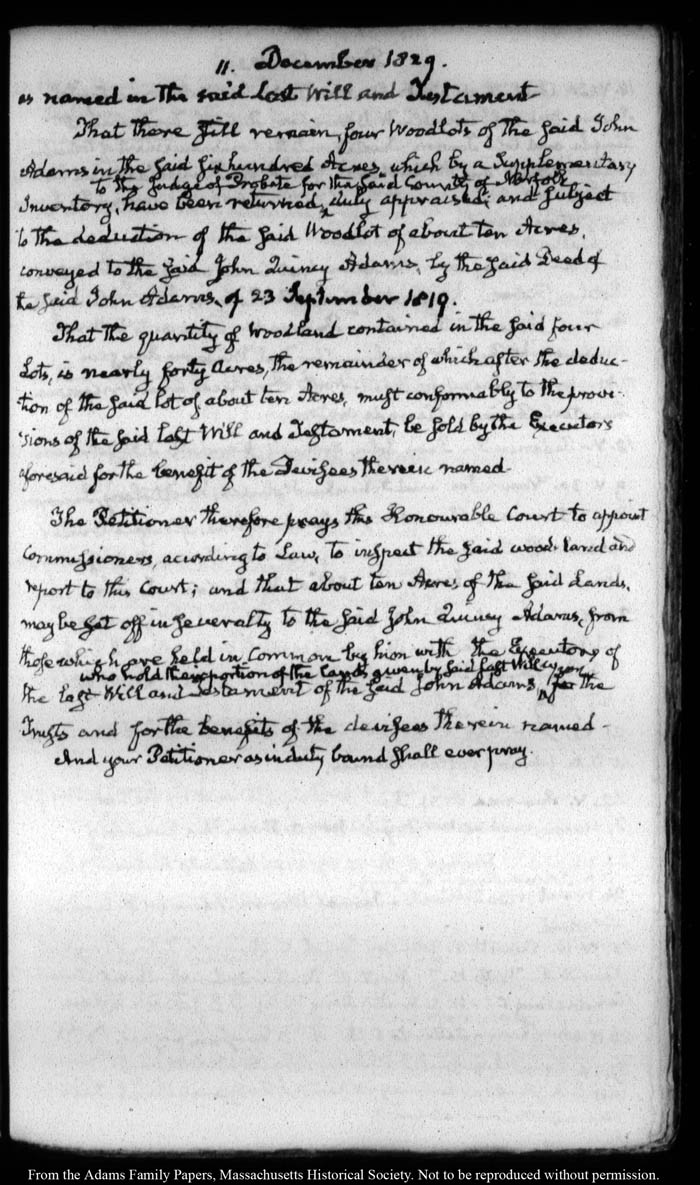 11. December 1829.
as named in the said last Will and Testament
That there still remain, four Woodlots of the said John
Adams in the said six hundred Acres, which by a Supplementary
to the Judge of Probate for the said County of Norfolk
Inventory, have been returned, duly appraised; and subject
to the deduction of the said Woodlot of about ten Acres,
conveyed to the said John Quincy Adams, by the said Deed of
the said John Adams, of 23 September 1819.
That the quantity of Woodland contained in the said four
Lots, is nearly forty Acres, the remainder of which after the deduc-
tion of the said lot of about ten Acres, must conformably to the provi-
sions of the said last Will and Testament, be sold by the Executors
aforesaid for the benefit of the Devisees therein named.
The Petitioner therefore prays this Honourable Court to appoint
Commissioners, according to Law, to inspect the said wood-land and
report to this Court; and that about ten Acres of the said Lands,
may be set off in severalty to the said John Quincy Adams, from
those which are held in Common by him with the Executors of
who hold the proportion of the Lands given by said last Will
the last Will and Testament of the said John Adams, for the
Trusts and for the benefits of the devisees therein named—
And your Petitioner as in duty bound shall ever pray.
From the Adams Family Papers, Massachusetts Historical Society. Not to be reproduced without permission.